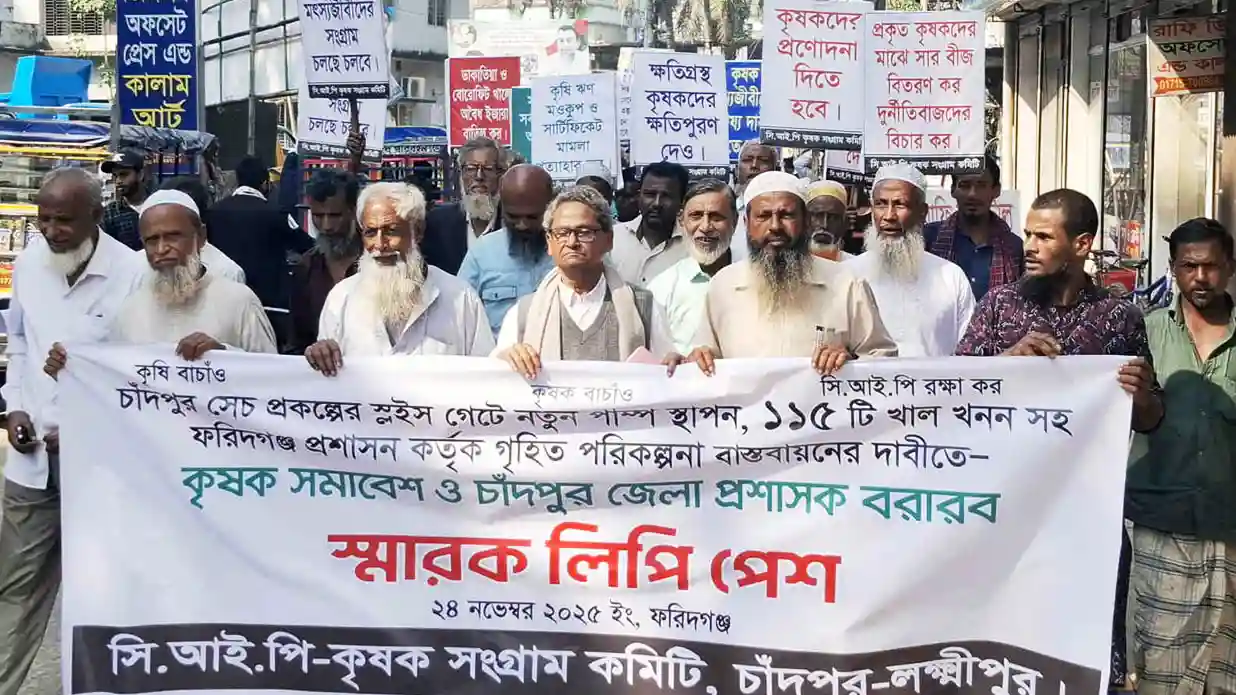 অফসেট
প্রেস এন্ড
কালাম
আর্ট
মৎস্যজীবীদের
সংগ্রাম
চলছে চলবে।
সি.আই.পি কৃষক সংগ্রাম কমিটি
সংগ্রাম
চলছে চলবে।
ডাকাতিয়া ও
বোরোপিট খালে
অবৈধ ইজারা
বাতিল কর।
কৃষি ঋণ
মওকুপ ও
সার্টিফিকেট
মামলা
ক্ষতিগ্রস্থ
কৃষকদের
ক্ষতিপুরণ
দেও।
কৃষকদের
প্রণোদনা
দিতে
হবে।
সি.আই.পি কৃষক সংগ্রাম কমিটি
প্রকৃত কৃষকদের
মাঝে সার বীজ
বিতরণ কর
দুর্নীতিবাজদের
বিচার কর।
সি.আই.পি কৃষক সংগ্রাম কমিটি
অফসেট
কৃষি বাচাঁও
কৃষক বাচাঁও
সি.আই.পি রক্ষা কর
চাঁদপুর সেচ প্রকল্পের স্লুইস গেটে নতুন পাম্প স্থাপন, ১১৫ টি খাল খনন সহ
ফরিদগঞ্জ প্রশাসন কর্তৃক গৃহিত পরিকল্পনা বাস্তবায়নের দাবীতে-
কৃষক সমাবেশ ও চাঁদপুর জেলা প্রশাসক বরারব
স্মারক লিপি পেশ
২৪ নভেম্বর ২০২৫ ইং, ফরিদগঞ্জ
সি.আই.পি-কৃষক সংগ্রাম কমিটি, চাঁদপুর-লক্ষ্মীপুর।